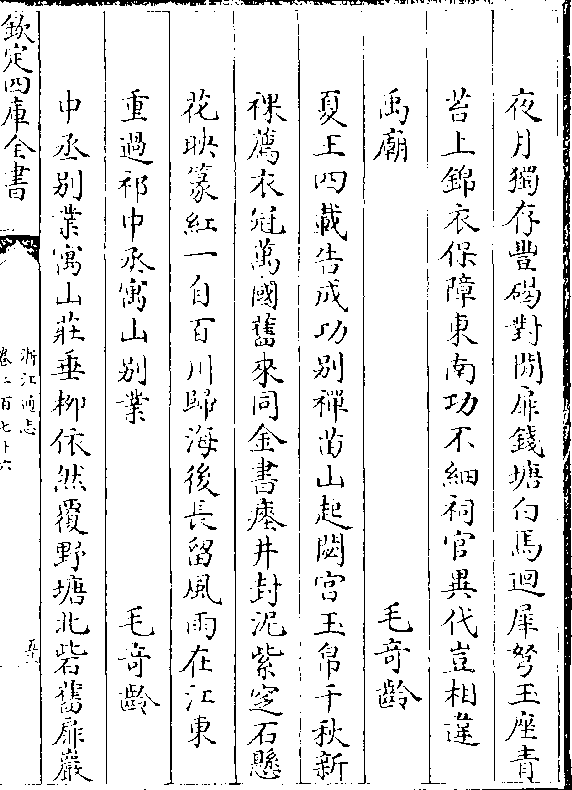 夜月獨存豐碣對閒扉錢塘白馬迴犀弩玉座青
苔上錦衣保障東南功不細祠官異代豈相違
禹廟　毛竒齡
夏王四載告成功别禪苗山起閟宫玉帛千秋新
祼薦衣冠萬國舊來同金書瘞井封泥紫窆石懸
花映篆紅一自百川歸海後長留風雨在江東
重過祁中丞寓山别業　毛竒齡
中丞别業寓山莊垂柳依然覆野塘北砦舊扉巖
欽定四庫全書
浙江通志
卷二百七十六
五